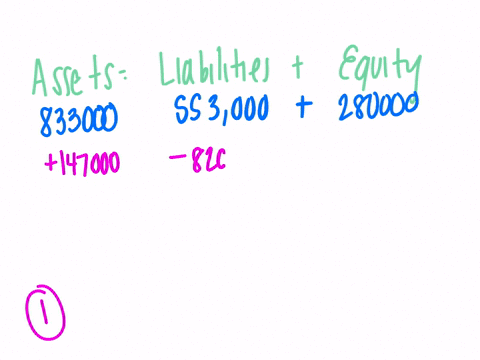 Assets = Liabilities + Equity
833000 553,000 + 280000
+147000 -820
1